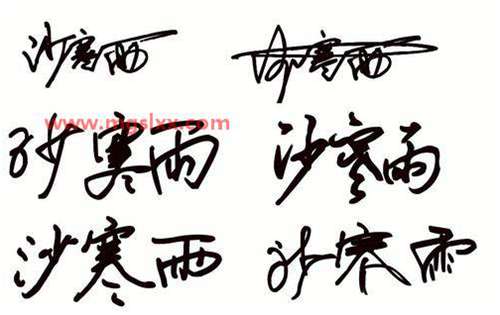 沙寒雨 沙寒雨
www.mgslxx.com
沙寒雨 沙寒雨
沙寒雨 沙寒雨